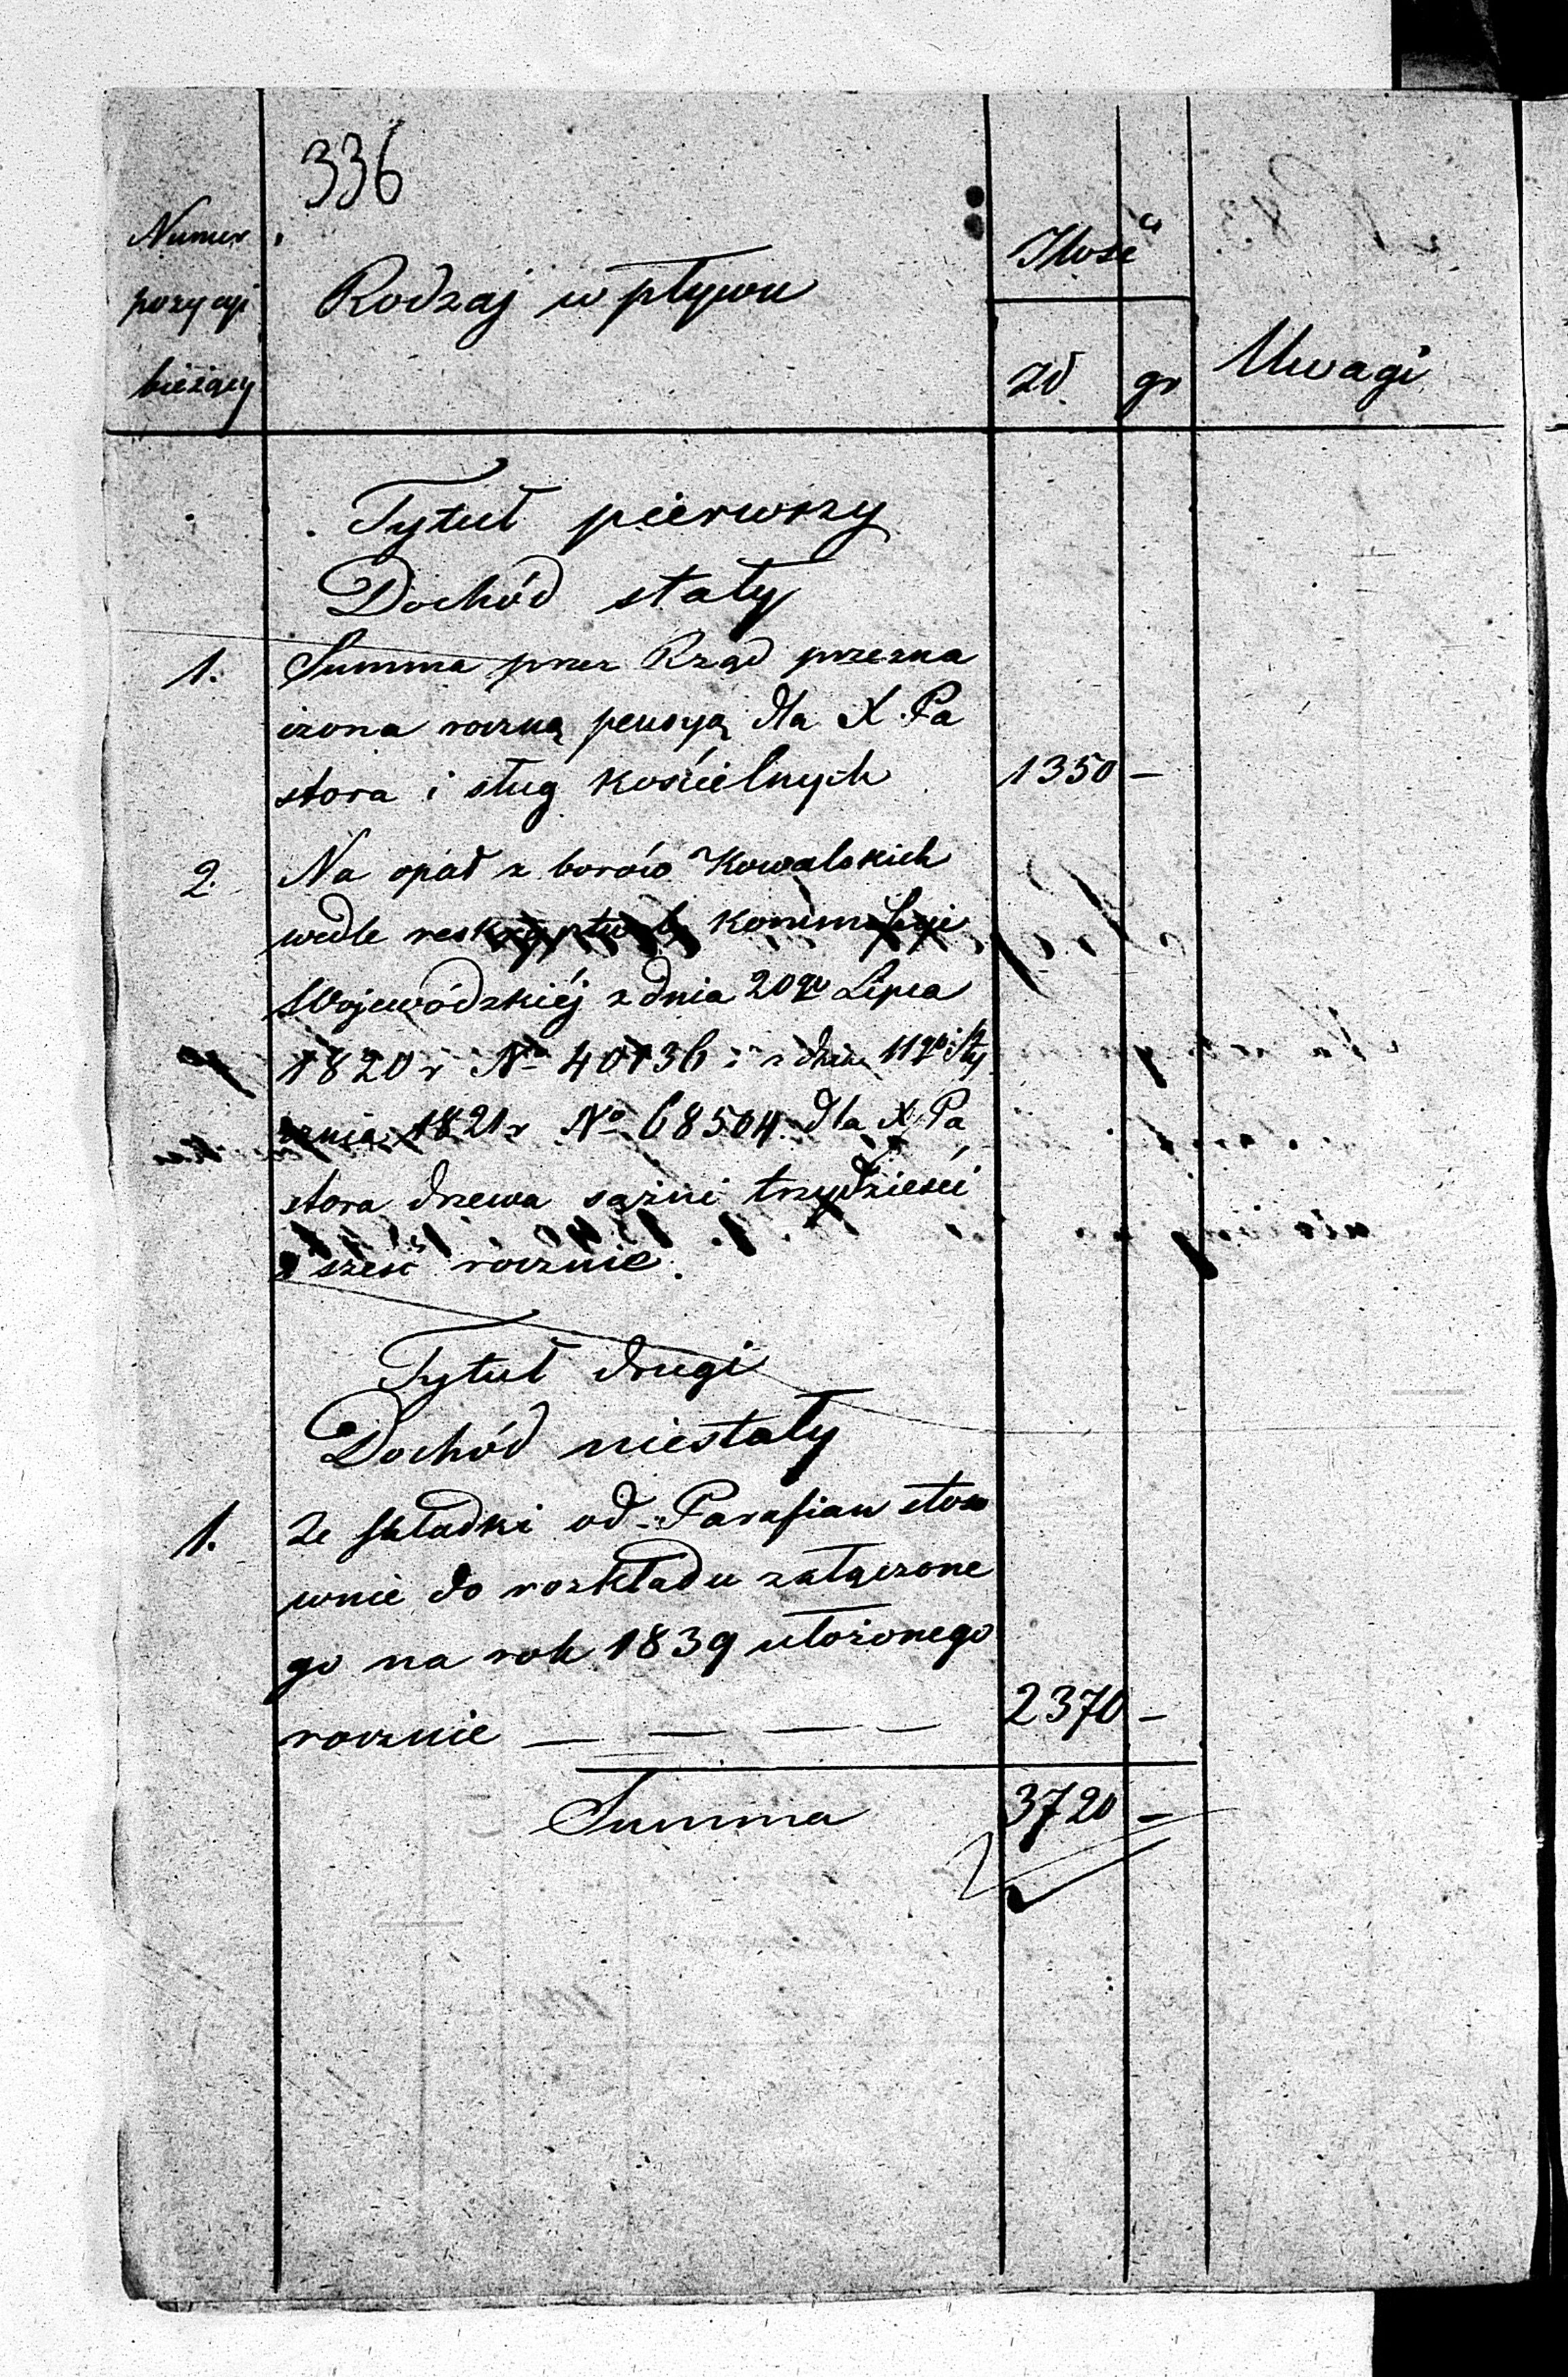 336
Numer
pozycyi
bieżący
Rodzaj wpływu
Ilość
zł. gr
Uwagi
Tytuł pierwszy
Dochód stały
1. Summa przez Rząd przezna
czona roczną pensyą dla X. Pa
stora i sług kościelnych 1350 —
2. Na opał z borów Kowalskich
wedle reskryptu Kommissyi
Wojewódzkiéj z dnia 20go Lipca
1820 r No 40136 i z dnia 11go Sty
cznia 1821 r No 68504 dla X. Pa
stora drzewa sążni trzydzieści
sześć rocznie.
Tytuł drugi
Dochód niestały
1. Ze składki od Parafian stoso
wnie do rozkładu załączone
go na rok 1839 ułożonego
rocznie — — — — 2370 —
Summa 3720 —